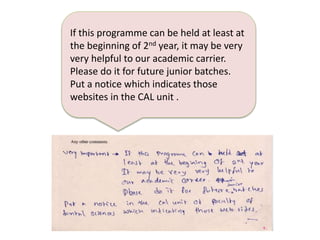 If this programme can be held at least at
the beginning of 2nd year, it may be very
very helpful to our academic carrier.
Please do it for future junior batches.
Put a notice which indicates those
websites in the CAL unit .
Any other comments
very important → If this Programme can be held at
least at the begining of 2nd year
It may be very very helpful to
our academic career
Please do it for future batches
junior
Put a notice in the cal unit of faculty of
dental sciences which indicating those web sites.